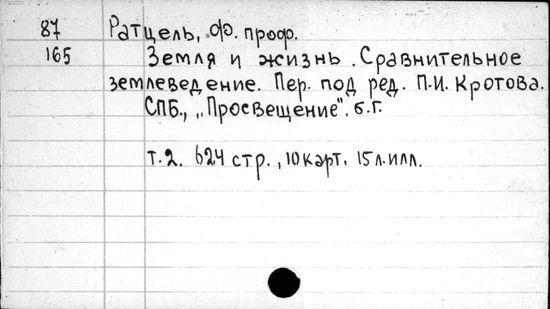 87 Ратцель, Ф. проф.
165 Земля и жизнь. Сравнительное
землеведение. Пер. под ред. П.И. Кротова.
СПБ., „Просвещение". б.г.
т.2. 624 стр., 10 карт, 15 л.илл.